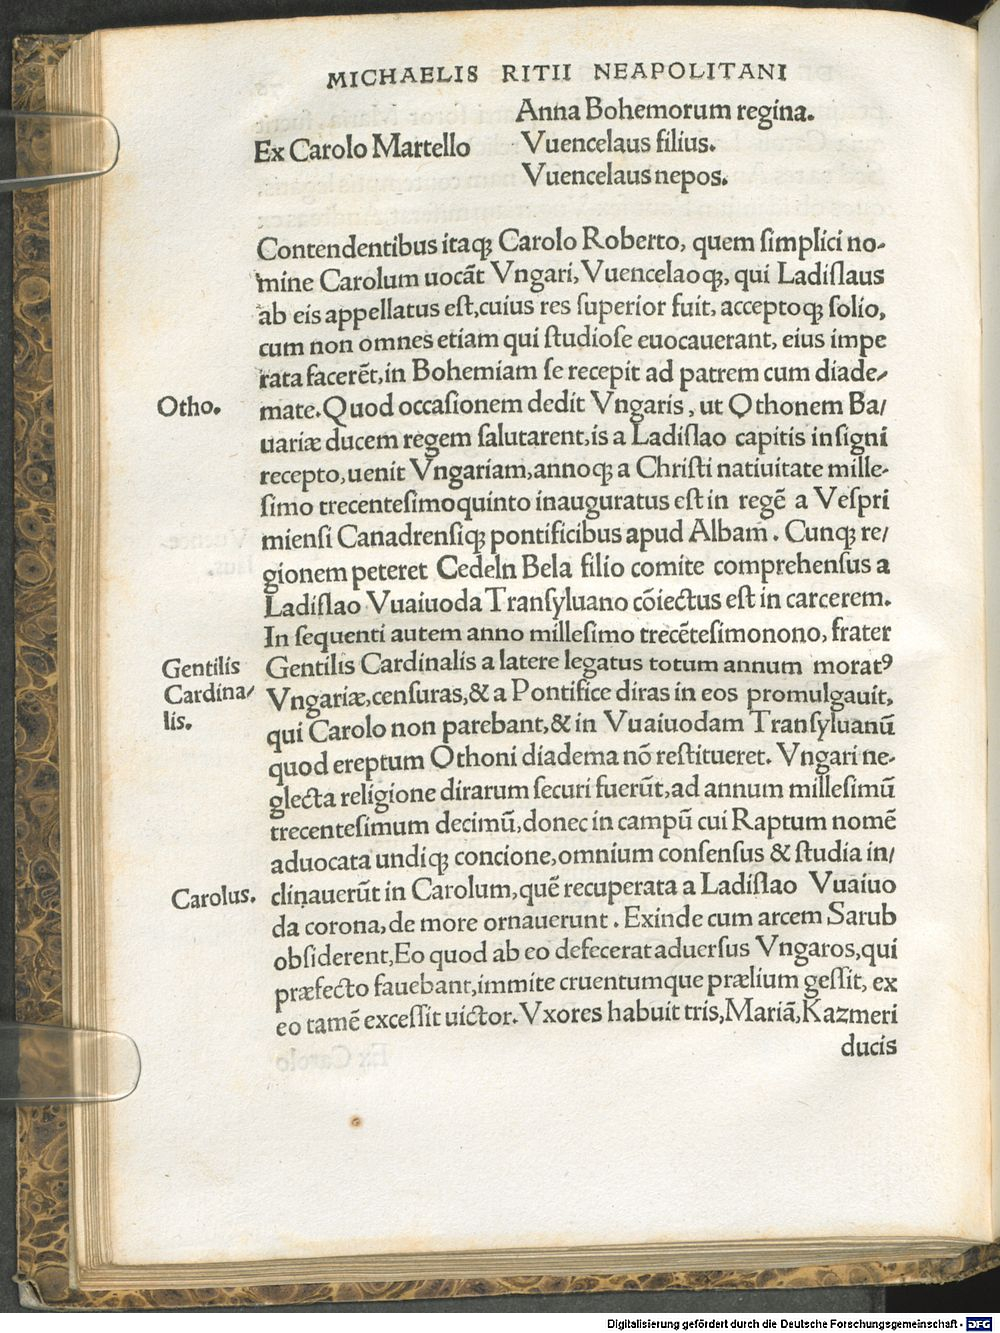 MICHAELIS RITII NEAPOLITANI
Anna Bohemorum regina.
Ex Carolo Martello
Vuencelaus filius.
Vuencelaus nepos.
Contendentibus itaqꝫ Carolo Roberto, quem simplici no-
mine Carolum uocãt Vngari, Vuencelaoqꝫ, qui Ladislaus
ab eis appellatus est, cuius res superior fuit, acceptoqꝫ solio,
cum non omnes etiam qui studiose euocauerant, eius impe
rata facerẽt, in Bohemiam se recepit ad patrem cum diade/
Otho.
mate. Quod occasionem dedit Vngaris, ut Othonem Ba/
uariæ ducem regem salutarent, is a Ladislao capitis insigni
recepto, uenit Vngariam, annoqꝫ a Christi natiuitate mille-
simo trecentesimoquinto inauguratus est in regẽ a Vespri
miensi Canadrensiqꝫ pontificibus apud Albam. Cunqꝫ re/
gionem peteret Cedeln Bela filio comite comprehensus a
Ladislao Vuaiuoda Transyluano cõiectus est in carcerem.
In sequenti autem anno millesimo trecẽtesimonono, frater
Gentilis
Cardina/
lis.
Gentilis Cardinalis a latere legatus totum annum moratꝰ
Vngariæ, censuras, & a Pontifice diras in eos promulgauit,
qui Carolo non parebant, & in Vuaiuodam Transyluanũ
quod ereptum Othoni diadema nõ restitueret. Vngari ne-
glecta religione dirarum securi fuerũt, ad annum millesimũ
trecentesimum decimũ, donec in campũ cui Raptum nomẽ
aduocata undiqꝫ concione, omnium consensus & studia in/
Carolus.
clinauerũt in Carolum, quẽ recuperata a Ladislao Vuaiuo
da corona, de more ornauerunt. Exinde cum arcem Sarub
obsiderent, Eo quod ab eo defecerat aduersus Vngaros, qui
præfecto fauebant, immite cruentumque prælium gessit, ex
eo tamẽ excessit uictor. Vxores habuit tris, Mariã, Kazmeri
ducis
Digitalisierung gefördert durch die Deutsche Forschungsgemeinschaft - DFG